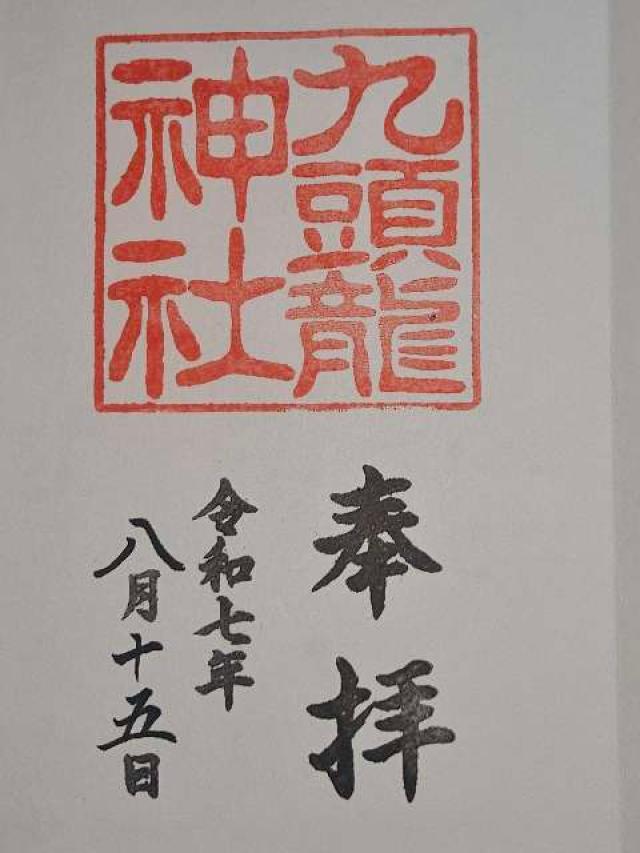 九頭龍
神社
奉拝
令和七年
八月十五日